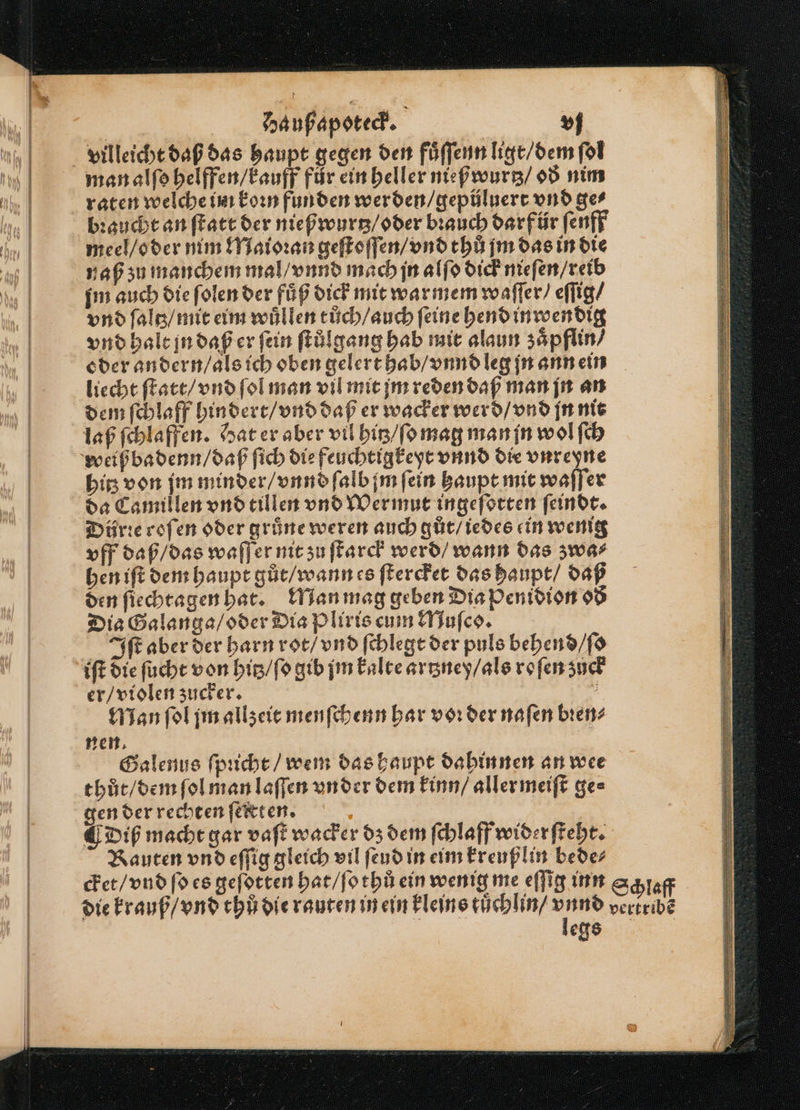 Haußapoteck. vj
villeicht daß das haupt gegen den fuͤſſenn ligt/dem ſol
man alſo helffen/kauff für ein heller nießwurtz/od̕ nim
raten welche im korn funden werden/gepüluert vnd ge⸗
braucht an ſtatt der nießwurtz/oder brauch darfür ſenff
meel/oder nim Maioran geſtoſſen/vnd thuͦ jm das in die
naß zu manchem mal/vnnd mach jn alſo dick nieſen/reib
jm auch die ſolen der fuͤß dick mit warmem waſſer/eſſig/
vnd ſaltz/mit eim wuͤllen tuͦch/auch ſeine hend inwendig
vnd halt jn daß er ſein ſtuͦlgang hab mit alaun zaͤpflin/
oder andern/als ich oben gelert hab/vnnd leg jn ann ein
liecht ſtatt/vnd ſol man vil mit jm reden daß man jn an
dem ſchlaff hindert/vnd daß er wacker werd/vnd jn nit
laß ſchlaffen. Hat er aber vil hitz/ſo mag man jn wol ſch
weißbadenn/daß ſich die feuchtigkeyt vnnd die vnreyne
hitz von jm minder/vnnd ſalb jm ſein haupt mit waſſer
da Camillen vnd tillen vnd Wermut ingeſotten ſeindt.
Dürre roſen oder gruͤne weren auch guͦt/iedes ein wenig
vff daß/das waſſer nit zu ſtarck werd/wann das zwa⸗
hen iſt dem haupt guͦt/wann es ſtercket das haupt/daß
den ſiechtagen hat. Man mag geben Dia Penidion od̕
Dia Galanga/oder Dia Pliris cum Muſco.
Iſt aber der harn rot/vnd ſchlegt der puls behend/ſo
iſt die ſucht von hitz/ſo gib jm kalte artzney/als roſen zuck
er/violen zucker.
Man ſol jm allzeit menſchenn har vor der naſen bren⸗
nen.
Galenus ſpricht/wem das haupt dahinnen an wee
thuͦt/dem ſol man laſſen vnder dem kinn/allermeiſt ge⸗
gen der rechten ſeitten.
¶ Diß macht gar vaſt wacker dz dem ſchlaff widerſteht.
Rauten vnd eſſig gleich vil ſeud in eim kreußlin bede⸗
cket/vnd ſo es geſotten hat/ſo thuͦ ein wenig me eſſig inn
die krauß/vnd thuͦ die rauten in ein kleins tuͤchlin/vnnd
legs
Schlaff
vertribē